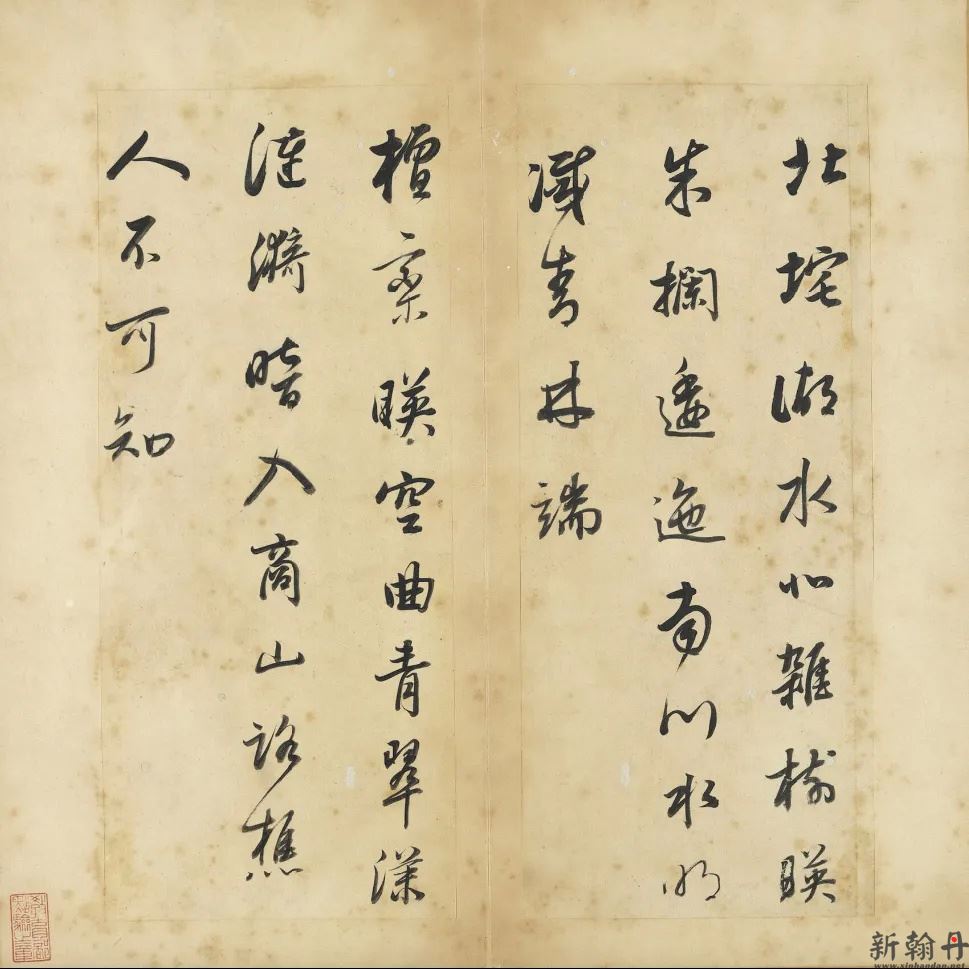 北垞湖水北雜樹暎
朱欄逶迤南川水明
滅青林端
檀欒暎空曲青翠漾
漣漪暗入商山路樵
人不可知
教育部
點驗之章
新翰丹
www.xinhandan.net